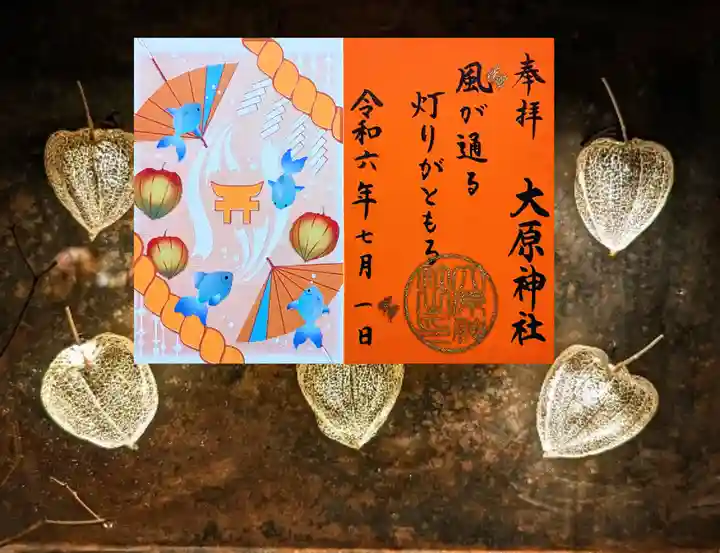 奉拝
大原神社
風が通る
灯りがともる
令和六年七月一日